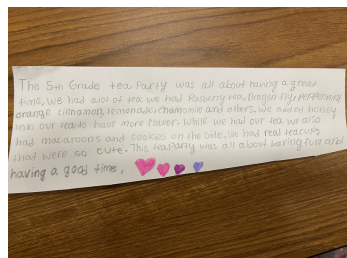 The 5th Grade tea Party was all about having a great
time, we had alot of tea. we had Rasberry tea, Dragon Fly, Peppermint
orange cinnamon, lemonade, chamomie and others. We added honey
into our tea to have more flavor. While we had our tea we also
had macaroons and cookies on the side. We had real teacups
that were so cute. This teaparty was all about having fun and
having a good time.